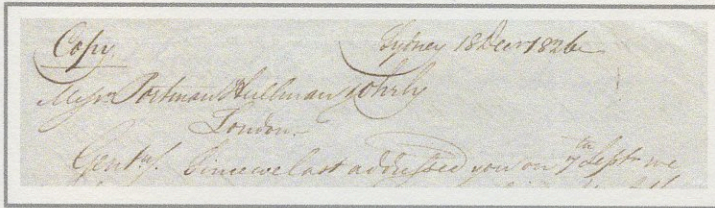 Copy Sydney 18 Decr 1826
Messrs Portman
London
Gentn. Since we last addressed you on 7th Septr we